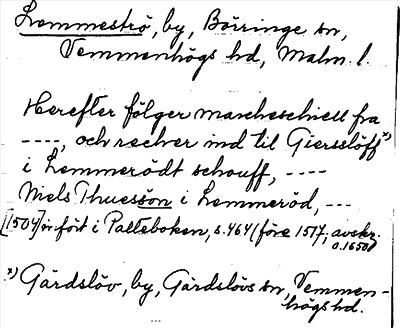 Lemmeströ, by, Börringe sn,
Vemmenhögs hd, Malm. l.
Herefter fölger marcheschiell fra
----, och recker ind til Giersslöff x)
i Lemmerödt schouff, ----
Niels Thuesson i Lemmeröd, ---
[1504] infört i Palteboken, s. 464 (före 1517, avskr. o. 1650)
x) Gärdslöv, by, Gärdslövs sn, Vemmen-
högs hd.